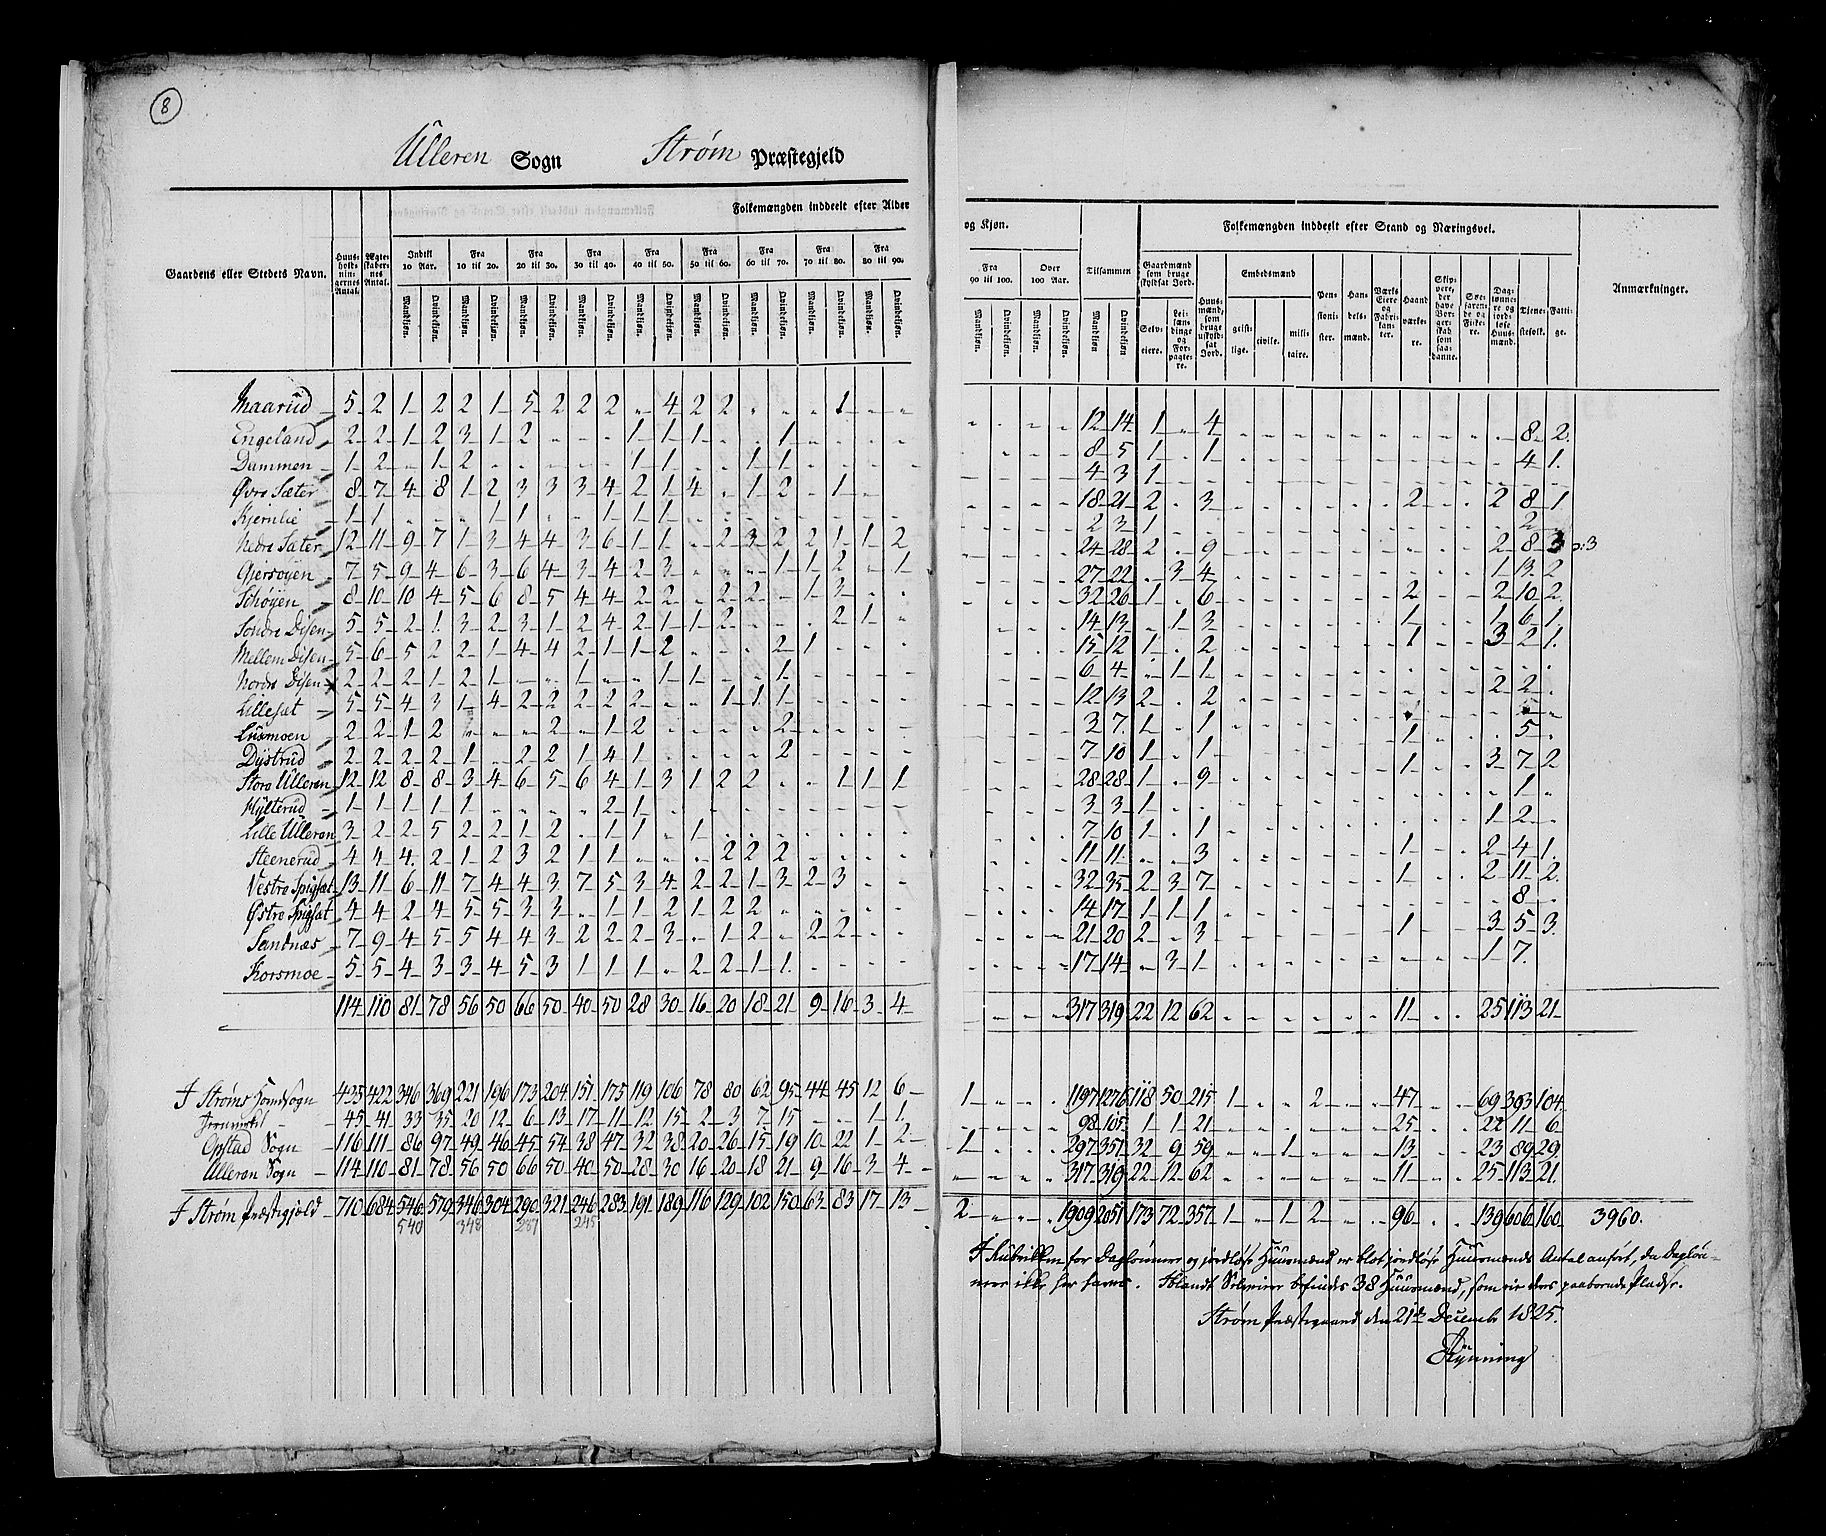 8
Ulleren Sogn Strøm Præstegjeld
Gaardens eller Stedets Navn.
Huusholdningernes Antal.
Ægteskabernes Antal.
Folkemængden inddeelt efter Alder
og Kjøn.
Folkemængden inddeelt efter Stand og Næringsvei.
Indtil 10 Aar. Fra 10 til 20. Fra 20 til 30. Fra 30 til 40. Fra 40 til 50. Fra 50 til 60. Fra 60 til 70. Fra 70 til 80. Fra 80 til 90.
Mandkjøn. Qvindekjøn. Mandkjøn. Qvindekjøn. Mandkjøn. Qvindekjøn. Mandkjøn. Qvindekjøn. Mandkjøn. Qvindekjøn. Mandkjøn. Qvindekjøn. Mandkjøn. Qvindekjøn. Mandkjøn. Qvindekjøn. Mandkjøn. Qvindekjøn.
Fra 90 til 100. Over 100 Aar. Tilsammen
Mandkjøn. Qvindekjøn. Mandkjøn. Qvindekjøn. Mandkjøn Qvindekjøn
Gaardmænd som bruge skyldsat Jord.
Selveiere. Leilændinge og Forpagtere.
Huusmænd, som bruge uskyldsat Jord.
Embedsmænd
geistlige. civile. militaire.
Pensionister.
Handelsmænd.
Værks Eiere og Fabrikanter.
Haandværkere.
Skippere, der have Borgerskab som saadanne.
Søefarende og Fiskere.
Daglønnere og jordløse Huusmænd.
Tjenestefolk.
Fattige.
Anmærkninger.
Maarud 5 2 1 2 2 1 5 2 2 2 „ 4 2 2 „ „ „ 1 „ „ 12 14 1 „ 4 8 2.
Engeland 2 2 1 2 3 1 2 „ „ „ 1 1 1 „ „ 1 8 5 1 „ 1 4 1.
Dammen 1 2 „ 1 2 „ „ „ „ „ 1 1 „ „ 1 1 4 3 1
Øvre Sæter 8 7 4 8 1 2 3 3 3 4 2 1 4 „ 1 2 „ 1 18 21 2 „ 3 2 2 8 1
Kjernlie 1 1 „ „ „ 1 1 „ „ 1 1 1 2 3 1 2
Nedre Sæter 12 11 9 7 1 3 4 4 3 6 1 1 „ 2 3 2 2 1 1 2 24 28 2 „ 9 2 8 3 o: 3
Gjersøyen 7 5 9 4 6 3 6 4 3 4 2 3 „ „ „ 1 1 2 „ 1 27 22 „ 3 4 1 13 2
Schøyen 8 10 10 4 5 6 8 5 4 4 2 2 „ 2 2 „ 1 3 „ „ 32 26 1 „ 6 2 2 10 2
Søndre Disen 5 5 2 1 3 2 3 1 2 4 2 1 1 2 „ „ „ 2 1 „ 14 13 „ 1 3 1 1 6 1
Mellem Disen 5 6 5 2 2 1 4 4 2 1 1 2 „ „ „ 2 1 15 12 1 „ 2 1 3 2 1.
Nordre Disen 2 2 2 1 2 1 „ „ 1 „ „ 1 1 „ „ 1 6 4 „ 1 1
Lillesæt 5 5 4 3 1 4 2 2 2 2 2 „ „ 1 1 1 12 13 2 „ 2 2 2
Lusmoen 2 2 1 2 „ „ „ 2 „ 1 2 „ „ „ „ 2 3 7 1 „ 1
Dystrud 2 2 2 2 1 „ 2 2 1 4 1 „ „ „ „ 2 7 10 1 „ 1 1 5
Store Ulleren 12 12 8 8 3 4 6 5 6 4 1 3 1 2 2 „ „ 1 1 1 28 28 1 „ 9 1 3 7 2
Hylterud 1 1 1 1 1 „ „ „ „ 2 1 3 3 1 1
Lille Ulleren 3 2 2 5 2 2 1 2 „ 1 1 „ 1 7 10 1 „ 1 1 2
Steenerud 4 4 4 2 1 2 3 2 1 1 „ „ „ 2 2 2 11 11 „ „ 3 1 2 4 1
Vestre Spigset 13 11 6 11 7 4 4 3 7 5 3 4 2 2 1 3 2 3 32 35 2 3 7 1 2 11 2
Østre Spigset 4 4 2 4 5 5 3 3 „ 1 1 2 1 2 2 14 17 1 1 1 8
Sandnæs 7 9 4 5 5 4 4 3 2 2 2 3 „ 1 2 „ 2 2 21 20 2 „ 3 1 3 5 3
Korsmoe 5 5 4 3 3 4 5 3 1 1 1 „ 2 2 1 1 17 14 „ 3 1 1 7.
114 110 81 78 56 50 66 50 40 50 28 30 16 20 18 21 9 16 3 4 317 319 22 12 62 11 25 113 21
I Strøms Hovedsogn 435 422 346 369 221 196 173 204 151 175 119 106 78 80 62 95 44 45 12 6 1 1197 1276 118 50 215 1 „ „ 2 47 69 393 104
45 41 33 35 20 12 6 13 17 11 12 15 2 3 7 15 „ „ 1 1. 98 105 1 1 21 25 22 11 6
Opstad Sogn 116 111 86 97 49 46 45 54 38 47 32 38 20 26 15 19 10 22 1 2 1 297 351 32 9 59 „ „ 1 13 23 89 29
Ulleren Sogn 114 110 81 78 56 50 66 50 40 50 28 30 16 20 18 21 9 16 3 4 317 319 22 12 62 11 25 113 21.
I Strøm Præstegjeld 710 684 546 579 346 304 290 321 246 283 191 189 116 129 102 150 63 83 17 13 2 1909 2051 173 72 357 1 „ 1 2 96 139 606 160 3960.
540 348 287 245
I Rubrikken for Daglønnere og jordløse Huusmænd er blot jordløse Huusmænds Antal anført, da Dagløn-
nere ikke her haves. Iblandt Selveiere befindes 38 Huusmænd, som eie deres paaboende Pladse.
Strøm Præstegaard den 21de December 1825.